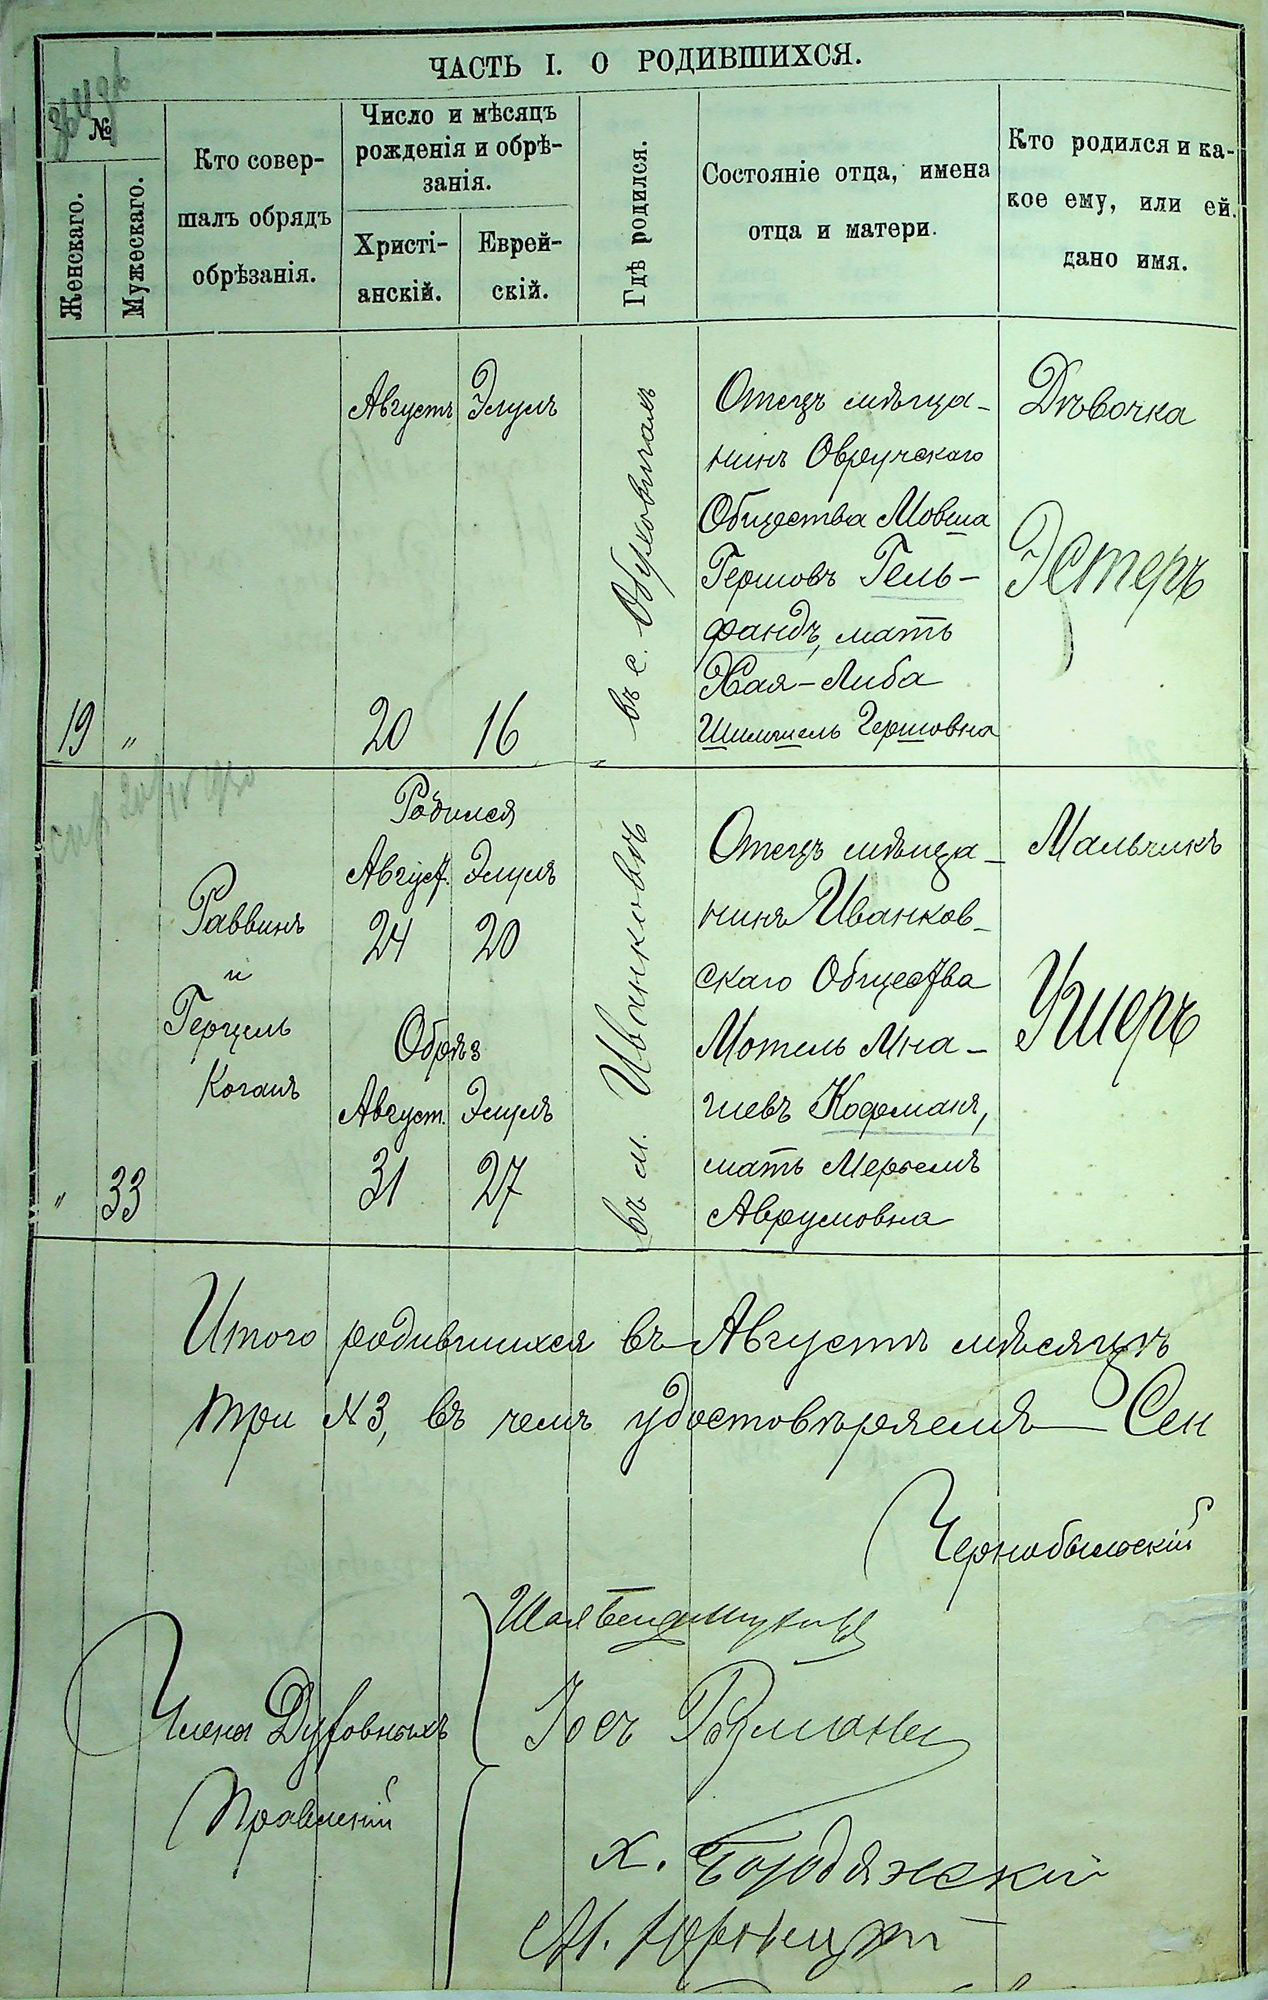 ЧАСТЬ I. О РОДИВШИХСЯ.
№
Женскаго.
Мужескаго.
Кто совер-
шалъ обрядъ
обрѣзанія.
Число и мѣсяцъ
рожденія и обрѣ-
занія.
Христі-
анскій.
Еврей-
скій.
Гдѣ родился.
Состояніе отца, имена
отца и матери.
Кто родился и ка-
кое ему, или ей.
дано имя.
19
"
Августъ
20
Элулъ
16
въ с. Обуховичахъ
Отецъ мѣща-
нинъ Овручскаго
Общества Мовша
Гершовъ Гель-
фандъ, мать
Хая-Либа
Шимшель Гершовна
Дѣвочка
Эстеръ
"
33
Раввинъ
и
Герцель
Коганъ
Родился
Август. Элулъ
24 20
Обрѣз
Август. Элулъ
31 27
въ м. Иванковѣ
Отецъ мѣща-
нинъ Иванков-
скаго Общества
Мотель Мна-
шевъ Кофманъ,
мать Мерьемъ
Аврумовна
Мальчикъ
Ушеръ
Итого родившихся въ Августѣ мѣсяцѣ
три №3, въ чемъ удостовѣряемъ
Чернобыльскій
Члены Духовныхъ
Правленій
Шая
Іосъ
Х. Бородянскій
М.